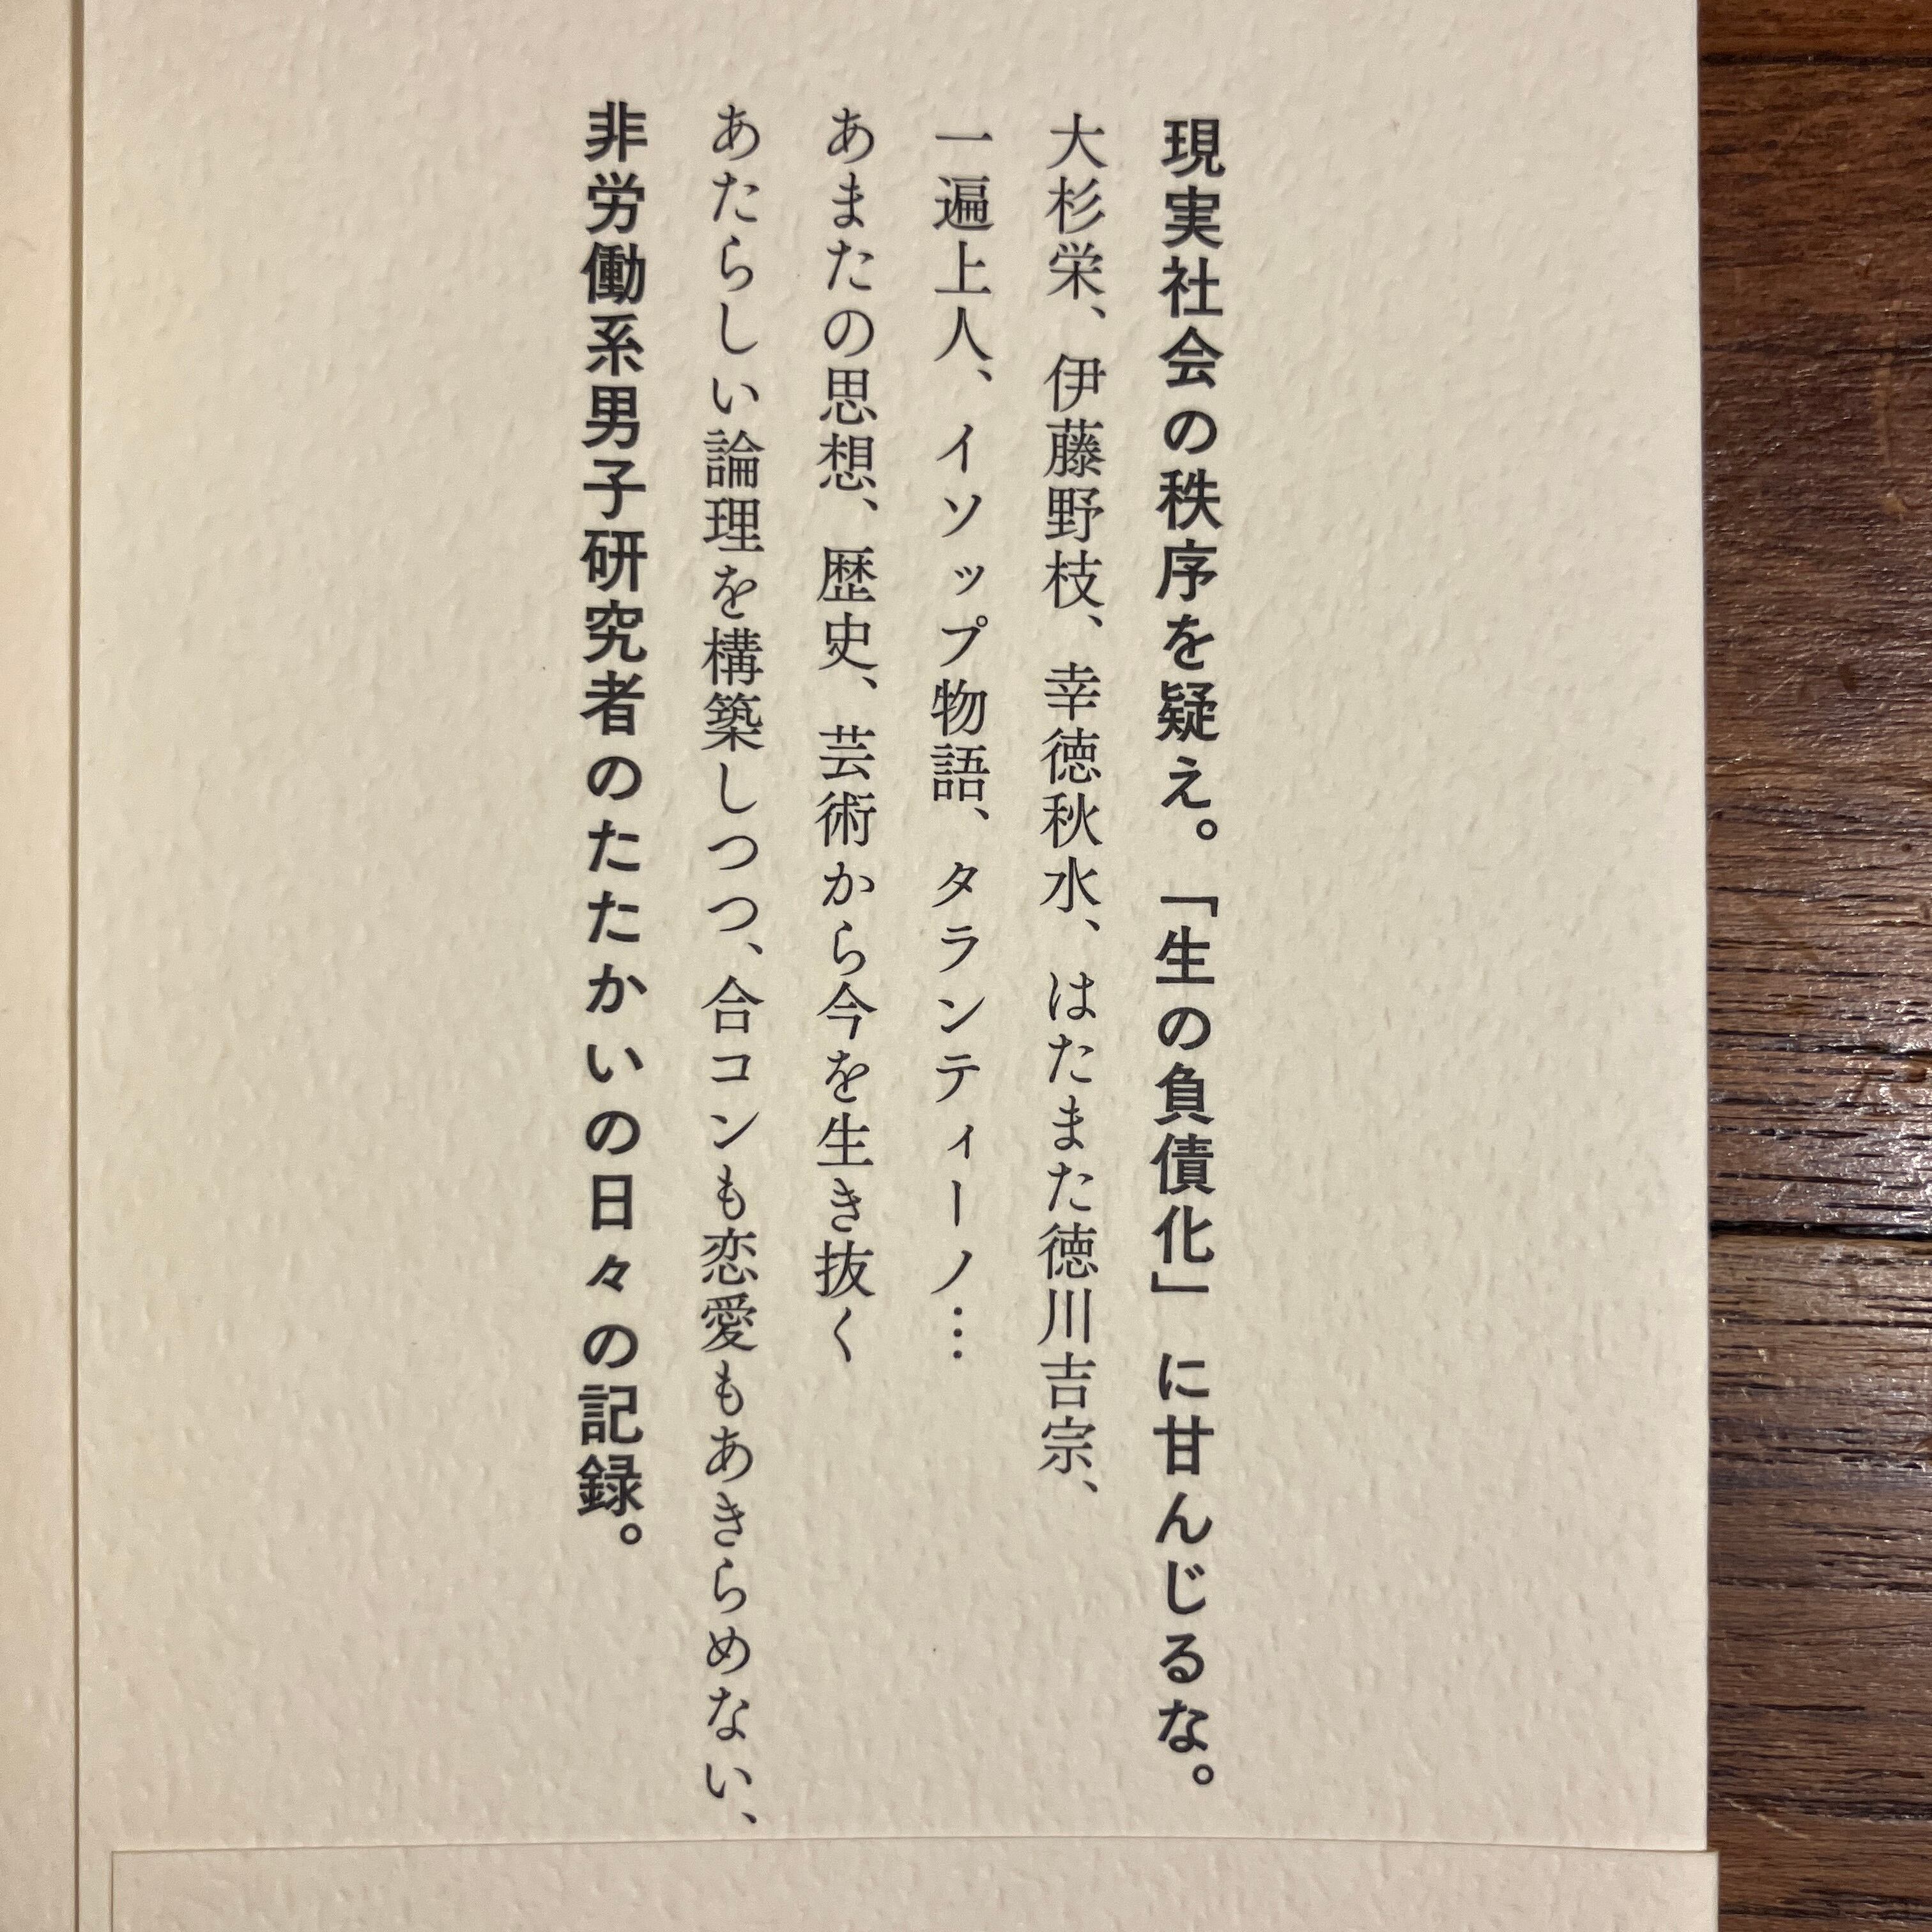 現実社会の秩序を疑え。「生の負債化」に甘んじるな。
大杉栄、伊藤野枝、幸徳秋水、はたまた徳川吉宗、
一遍上人、イソップ物語、タランティーノ…
あまたの思想、歴史、芸術から今を生き抜く
あたらしい論理を構築しつつ、合コンも恋愛もあきらめない、
非労働系男子研究者のたたかいの日々の記録。